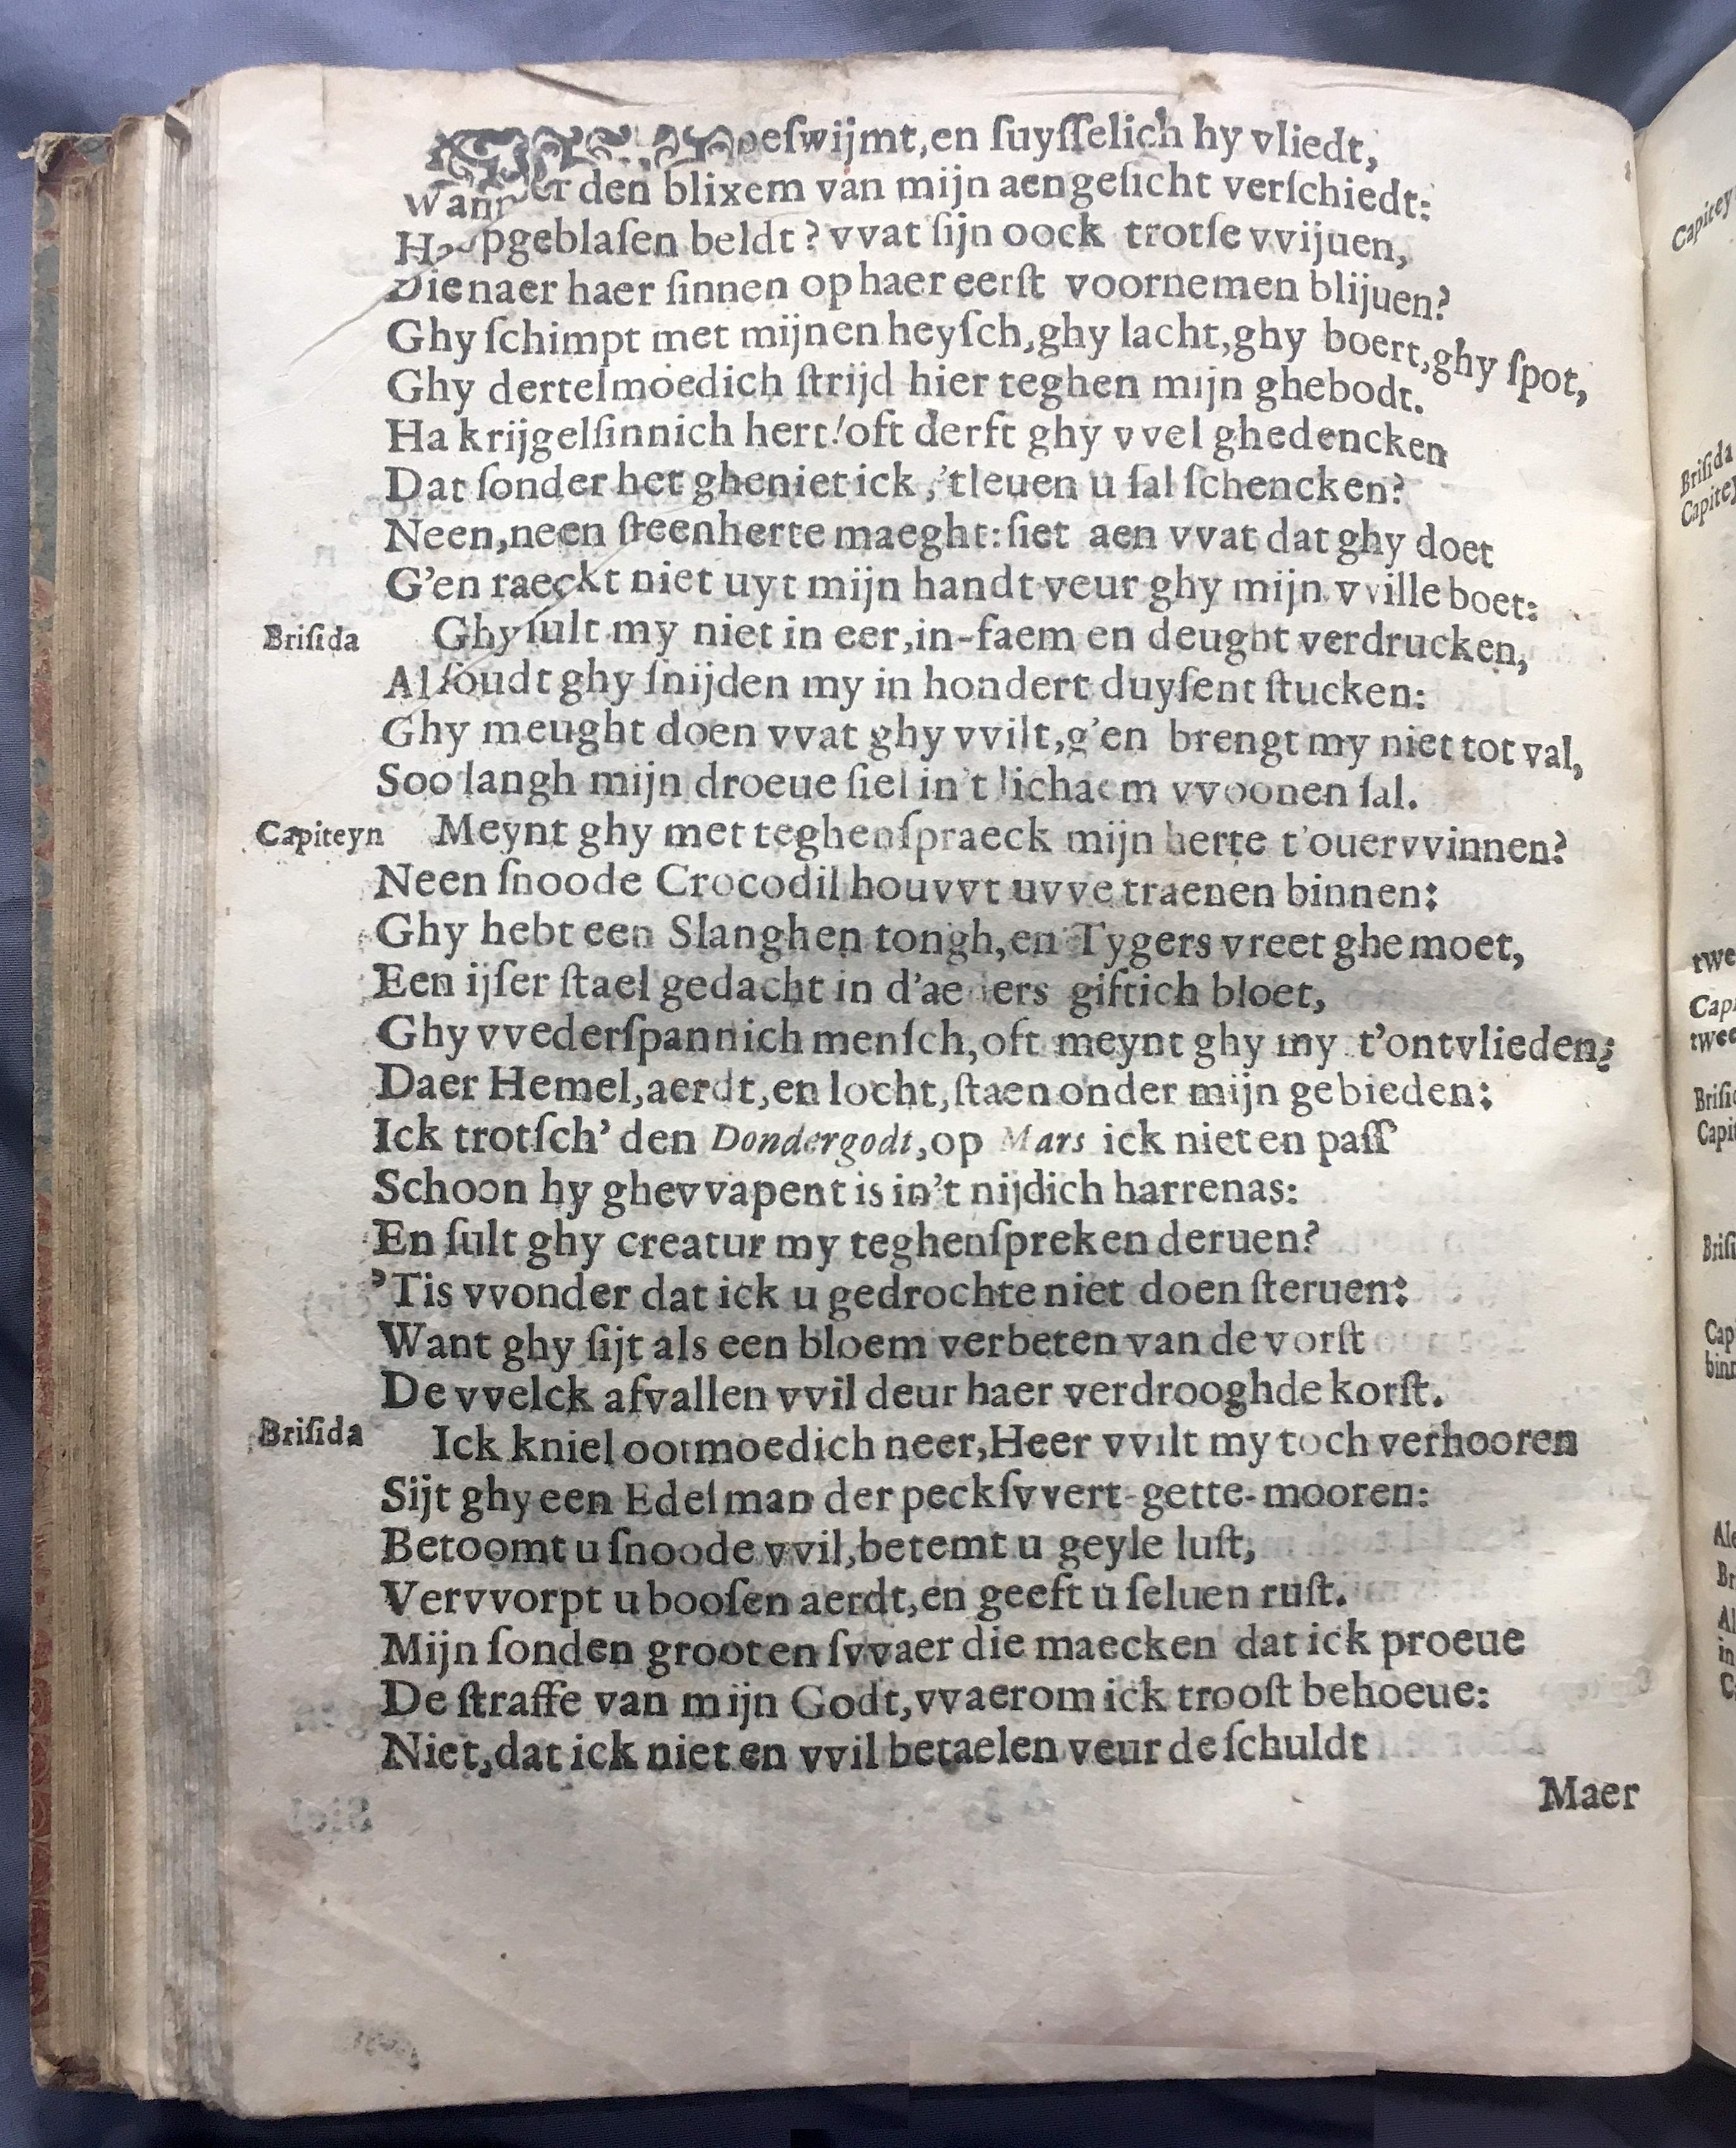 eſwijmt,en ſuyſſelich hy vliedt,
den blixem van mijn aengeſicht verſchiedt:
pgeblaſen beldt? vvat ſijn oock trotſe vvijuen,
Die naer haer ſinnen op haer eerſt voornemen blijuen?
Ghy ſchimpt met mijnen heyſch,ghy lacht,ghy boert,ghy ſpot,
Ghy dertelmoedich ſtrijd hier teghen mijn ghebodt.
Ha krijgelſinnich hert! oft derft ghy vvel ghedencken
Dat ſonder het gheniet ick ,'t leuen u ſal ſchencken?
Neen,neen ſteenherte maeght: ſiet aen vvat dat ghy doet
G'en raeckt niet uyt mijn handt veur ghy mijn vville boet:
Briſida Ghy ſult my niet in eer,in-faem en deught verdrucken,
Al ſoudt ghy ſnijden my in hondert duyſent ſtucken:
Ghy meught doen vvat ghy vvilt,g'en brengt my niet tot val,
Soo langh mijn droeue ſiel in't lichaem vvoonen ſal.
Capiteyn Meynt ghy met teghenſpraeck mijn herte t'ouervvinnen?
Neen ſnoode Crocodil houvvt uvve traenen binnen:
Ghy hebt een Slanghen tongh,en Tygers vreet ghemoet,
Een ijſer ſtael gedacht in d'aeders giftich bloet,
Ghy vvederſpannich menſch,oft meynt ghy my t'ontvlieden;
Daer Hemel,aerdt,en locht,ſtaen onder mijn gebieden:
Ick trotſch' den Dondergodt,op Mars ick niet en paſſ'
Schoon hy ghevvapent is in't nijdich harrenas:
En ſult ghy creatur my teghenſpreken deruen?
'Tis vvonder dat ick u gedrochte niet doen ſteruen:
Want ghy ſijt als een bloem verbeten van de vorſt
De vvelck afvallen vvil deur haer verdrooghde korſt.
Briſida Ick kniel ootmoedich neer,Heer vvilt my toch verhooren
Sijt ghy een Edelman der peckſvvert-gette-mooren:
Betoomt u ſnoode vvil,betemt u geyle luſt,
Vervvorpt u booſen aerdt,en geeft u ſeluen ruſt.
Mijn ſonden groot en ſvvaer die maecken dat ick proeue
De ſtraffe van mijn Godt,vvaerom ick trooſt behoeue:
Niet,dat ick niet en vvil betaelen veur de ſchuldt
Maer
Capitey
Briſida
Capitey